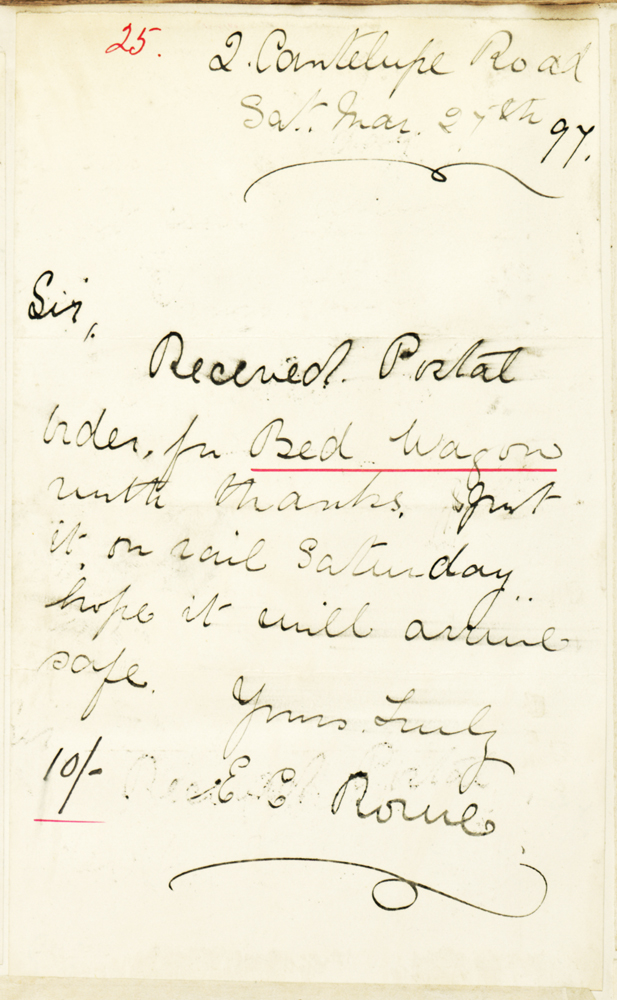 25.
2. Cantelupe Road
Sat. Mar. 27th 97.
Sir,
Received. Postal
Order, for Bed Wagon
with thanks. Put
it on rail Saturday
hope it will arrive
safe.
Yours Truly
10/-
E C Rowe